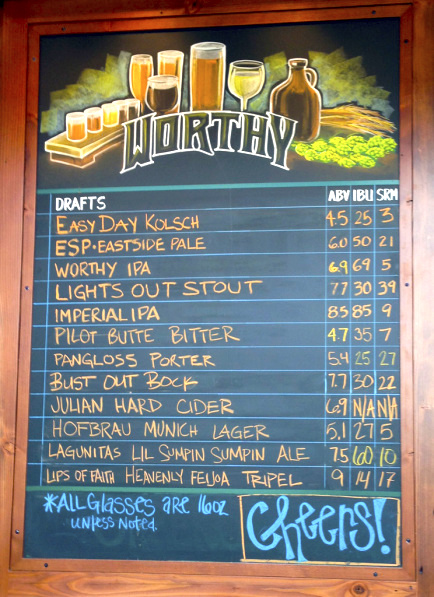 WORTHY
DRAFTS ABV IBU SRM
EASY DAY KOLSCH 4.5 25 3
ESP·EASTSIDE PALE 6.0 50 21
WORTHY IPA 6.9 69 5
LIGHTS OUT STOUT 77 30 39
IMPERIAL IPA 85 85 9
PILOT BUTTE BITTER 4.7 35 7
PANGLOSS PORTER 5.4 25 27
BUST OUT BOCK 7.7 30 22
JULIAN HARD CIDER 6.9 N/A N/A
HOFBRAU MUNICH LAGER 5.1 27 5
LAGUNITAS LIL SUMPIN SUMPIN ALE 75 60 10
LIPS OF FAITH HEAVENLY FEIJOA TRIPEL 9 14 17
*ALL GLASSES ARE 16oz
UNLESS NOTED.
Cheers!